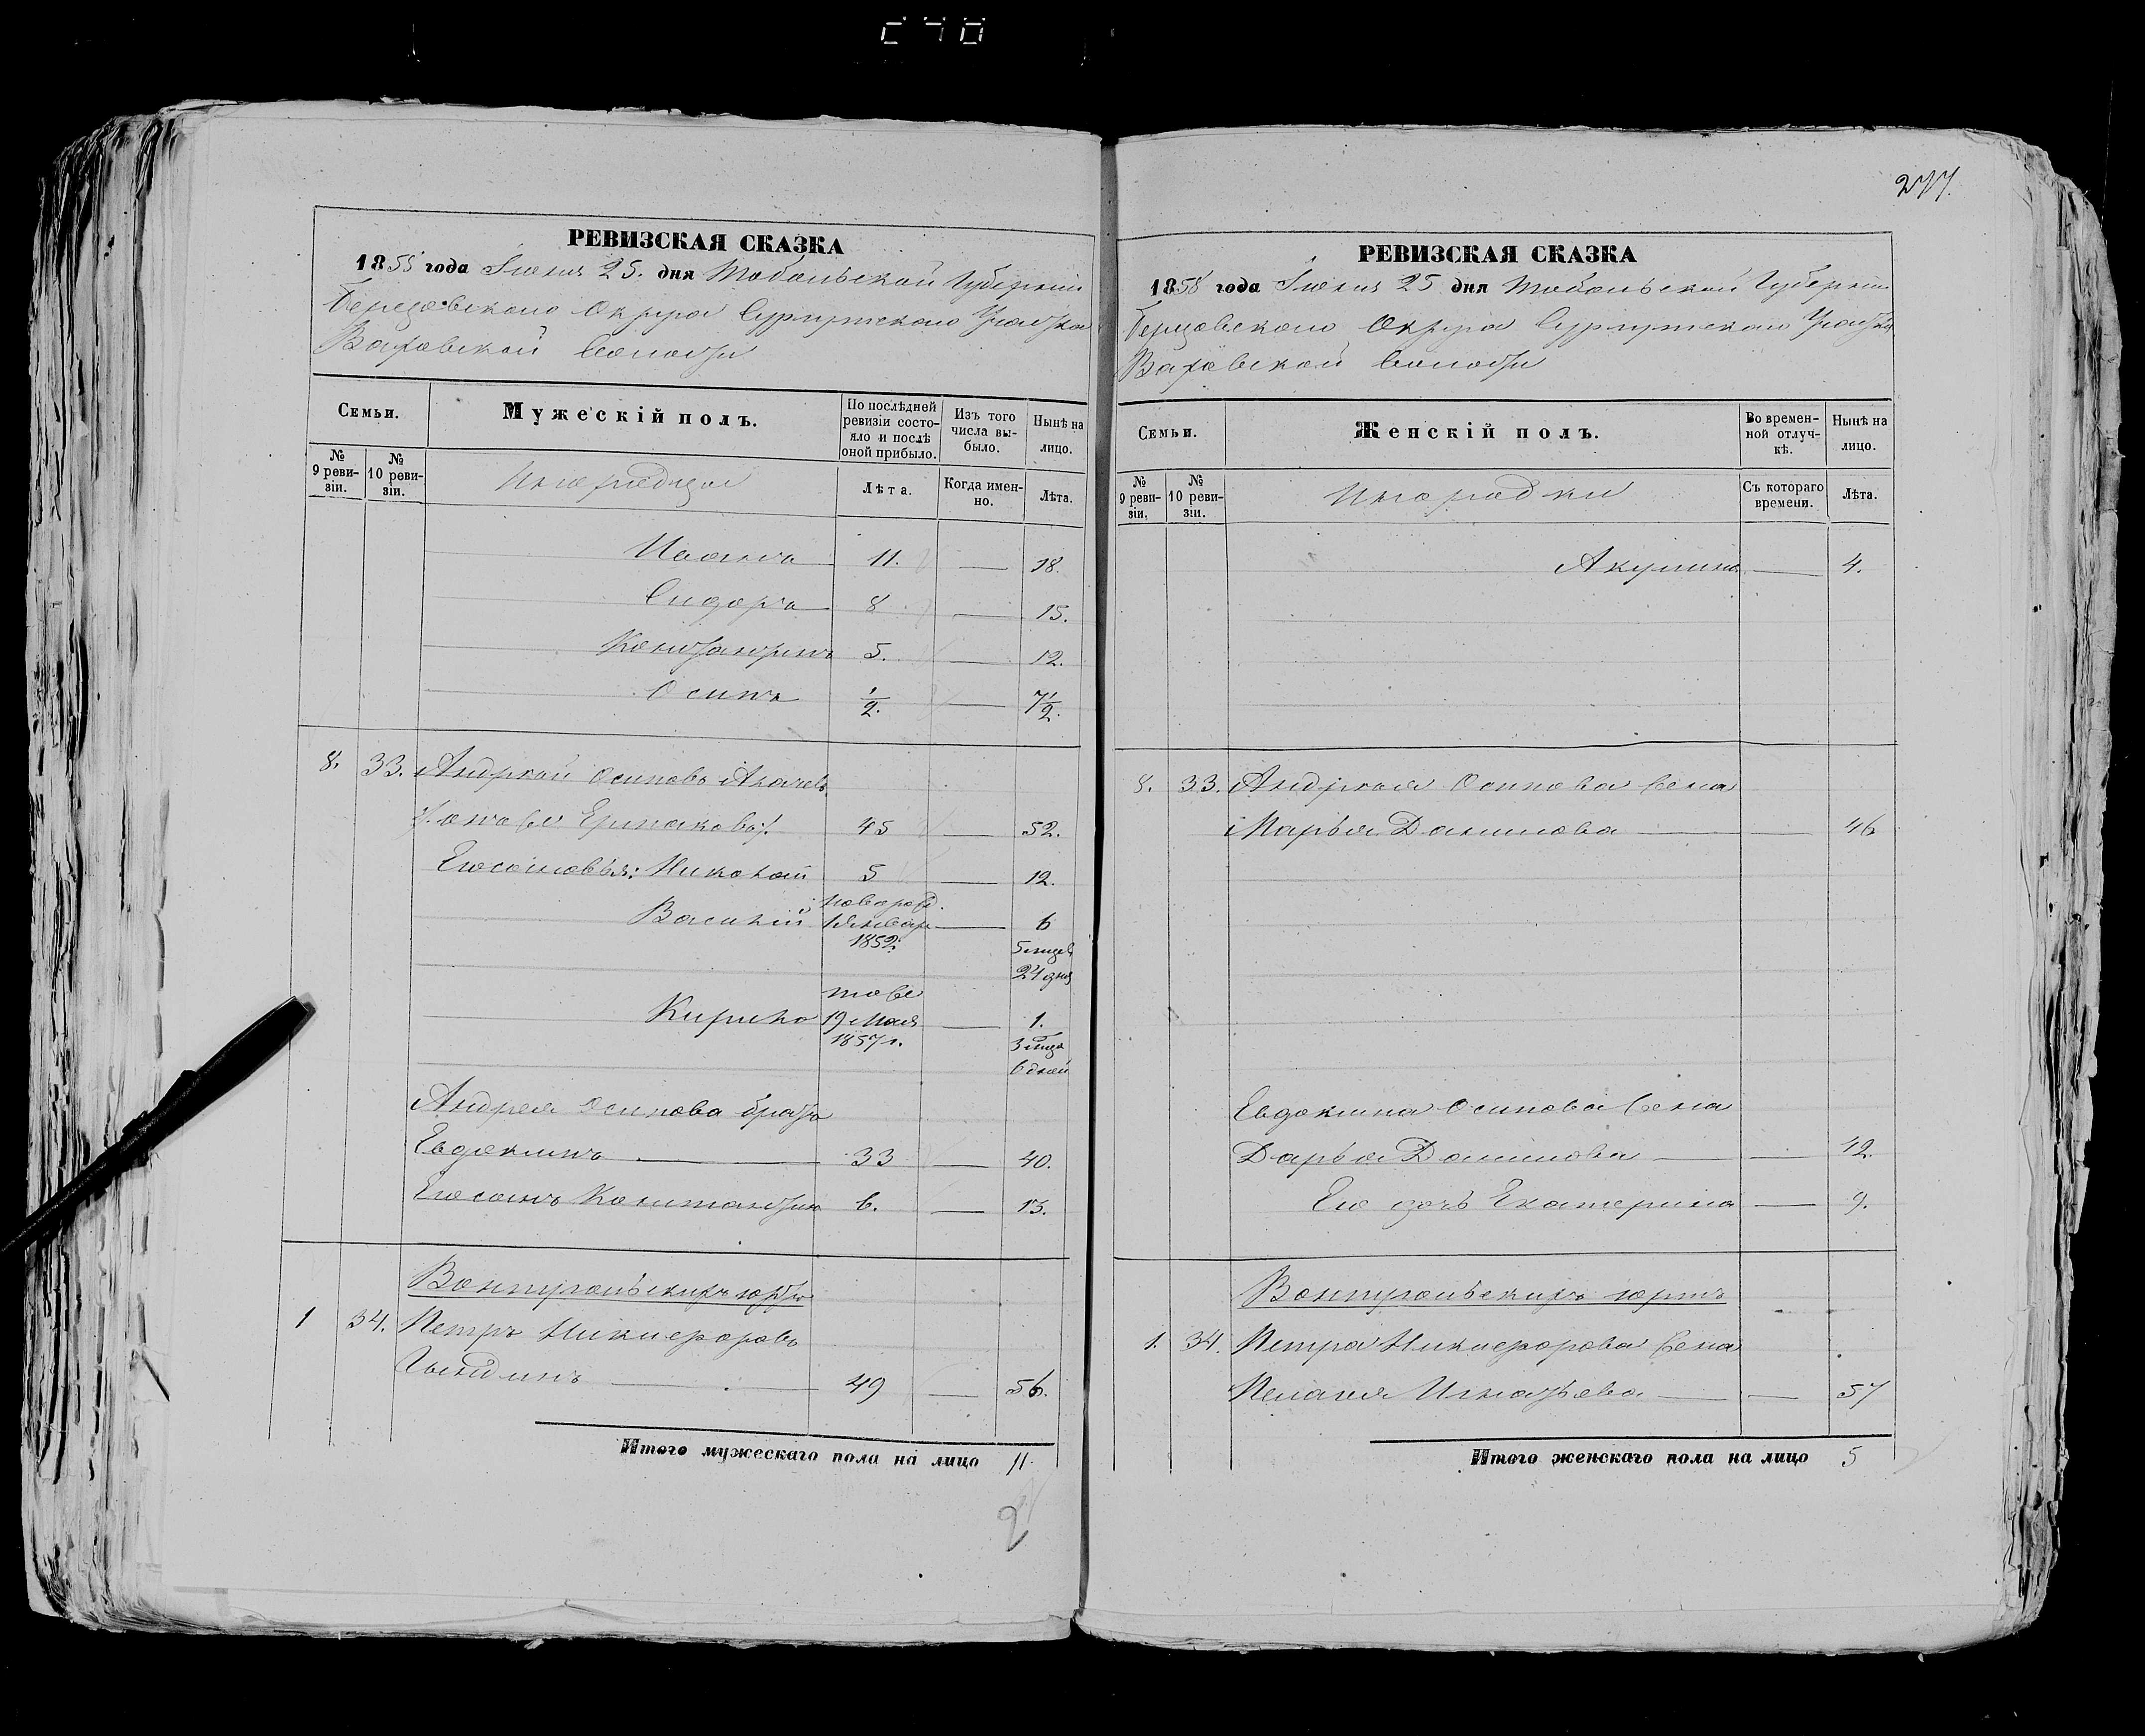 277.
РЕВИЗСКАЯ СКАЗКА
1858 года Июня 25. дня Тобольской Губернии
Березовскаго Округа Сургутскаго Участка
Ваховской Волости
Семьи.
Мужескій полъ.
По послѣдней ревизіи состояло и послѣ оной прибыло.
Изъ того числа выбыло.
Нынѣ на лицо.
№ 9 ревизіи.
№ 10 ревизіи.
Инородцы
Лѣта.
Когда именно.
Лѣта.
Иванъ 11. — 18.
Сидоръ 8 — 15.
Константинъ 5. — 12.
Осипъ 1/2. — 7 1/2.
8. 33. Андрей Осиповъ
онъ же Ермаковъ 45 — 52.
Его сыновья: Николай 5 — 12.
новорожд.
Василій 1 Январ — 6
1852. 5 мцев
24 дня
тоже
Кирило 19 Мая — 1.
1857 г. 3 мца
6 дней
Андрея Осипова братъ
Евдокимъ — 33 — 40.
Его сынъ Константинъ 6. — 13.
юртъ
1 34. Петръ Никифоровъ
— 49 — 56.
Итого мужескаго пола на лицо 11.
2
РЕВИЗСКАЯ СКАЗКА
1858 года Июня 25 дня Тобольской Губернии
Березовскаго Округа Сургутскаго Участка
Ваховской Волости
Семьи.
Женскій полъ.
Во временной отлучкѣ.
Нынѣ на лицо.
№ 9 ревизіи.
№ 10 ревизіи.
Инородки
Съ котораго времени.
Лѣта.
Акулина — 4.
8. 33. Андрея Осипова жена
Марья Данилова — — 46
Евдокима Осипова жена
Дарья Данилова — — 42.
Его дочь Екатерина — 9.
юртъ
1. 34. Петра Никифорова жена
Пелагия Игнатьева — — 57
Итого женскаго пола на лицо 5